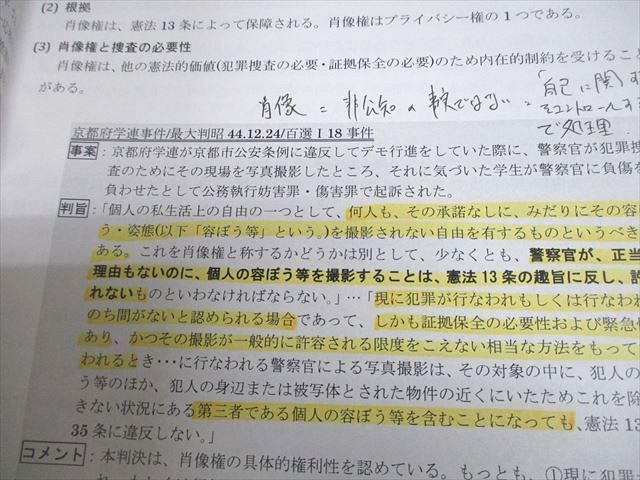 (2) 根拠
肖像権は、憲法 13 条によって保障される。肖像権はプライバシー権の 1 つである。
(3) 肖像権と捜査の必要性
肖像権は、他の憲法的価値(犯罪捜査の必要・証拠保全の必要)のため内在的制約を受けること
がある。
「自己に関す
肖像 = 非公知
コントロール
で処理
京都府学連事件/最大判昭 44.12.24/百選Ⅰ18 事件
事案:京都府学連が京都市公安条例に違反してデモ行進をしていた際に、警察官が犯罪捜
査のためにその現場を写真撮影したところ、それに気づいた学生が警察官に負傷を
負わせたとして公務執行妨害罪・傷害罪で起訴された。
判旨:「個人の私生活上の自由の一つとして、何人も、その承諾なしに、みだりにその容
う・姿態(以下「容ぼう等」という。)を撮影されない自由を有するものというべき
ある。これを肖像権と称するかどうかは別として、少なくとも、警察官が、正当
理由もないのに、個人の容ぼう等を撮影することは、憲法 13 条の趣旨に反し、許
れないものといわなければならない。」…「現に犯罪が行なわれもしくは行なわ
のち間がないと認められる場合であって、しかも証拠保全の必要性および緊急性
あり、かつその撮影が一般的に許容される限度をこえない相当な方法をもって
われるとき…に行なわれる警察官による写真撮影は、その対象の中に、犯人の
う等のほか、犯人の身辺または被写体とされた物件の近くにいたためこれを除
きない状況にある第三者である個人の容ぼう等を含むことになっても、憲法 13
35 条に違反しない。」
コメント:本判決は、肖像権の具体的権利性を認めている。もっとも、①現に犯罪